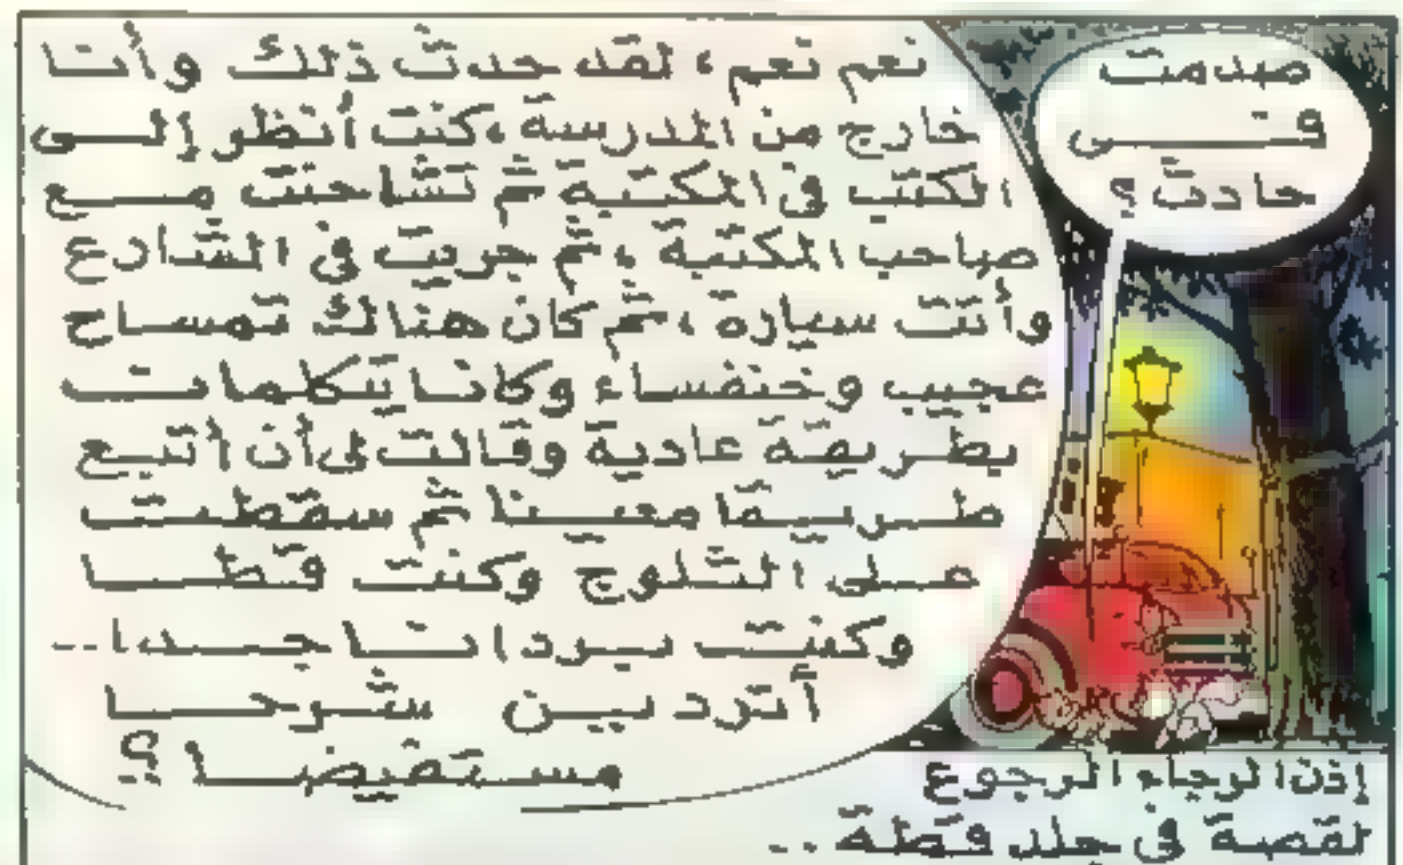 صدمت
فى
حادث؟
نعم نعم، لقد حدث ذلك وأنا
خارج من المدرسة، كنت أنظر إلى
الكتب فى المكتبة ثم تشاحنت مع
صاحب المكتبة، ثم جريت فى الشارع
وأتت سيارة، ثم كان هناك تمساح
عجيب وخنفساء وكانا يتكلمان
بطريقة عادية وقالت لى أن أتبع
طريقا معينا ثم سقطت
على الثلوج وكنت قطا
وكنت بردانا جدا..
أتردين شرحا
مستفيضا؟
إذن الرجاء الرجوع
لقصة فى جلد قطة..